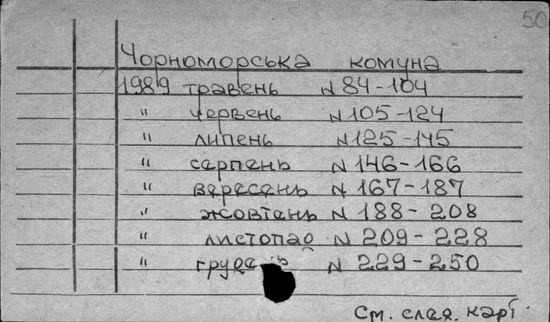 50
Чорноморська комуна
1989 травень N 84-104
" червень N 105-124
" липень N 125-145
" серпень N 146-166
" вересень N 167-187
" жовтень N 188-208
" листопад N 209-228
" N 229-250
См. след. карт.